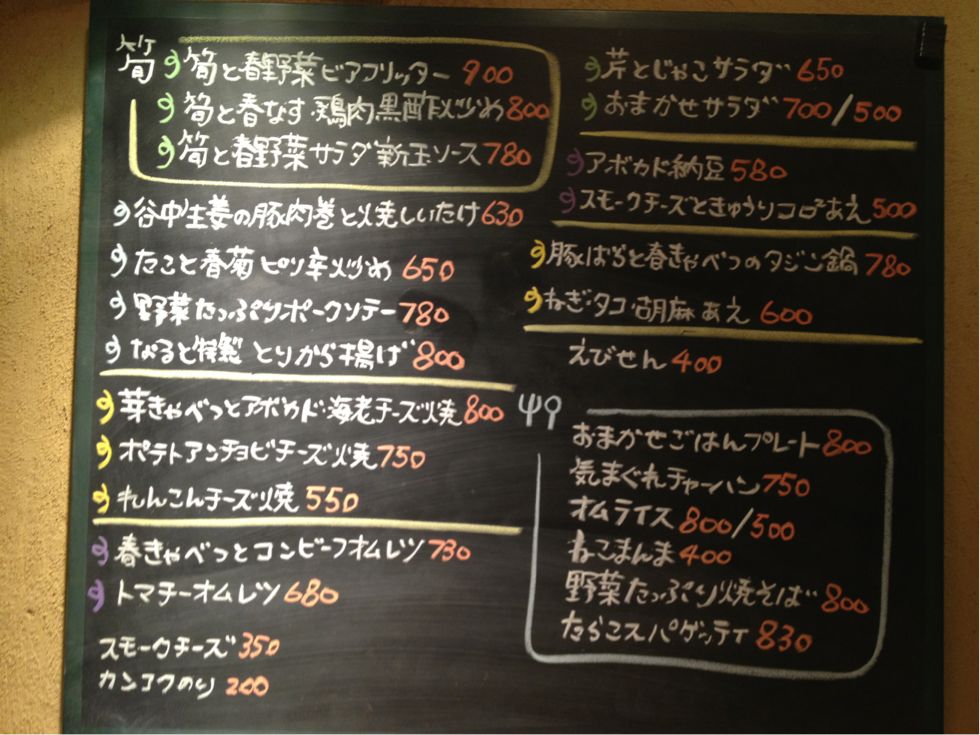 筍
筍と春野菜ビアフリッター 900
筍と春なす・鶏肉黒酢炒め 800
筍と春野菜サラダ新玉ソース 780
谷中生姜の豚肉巻と焼しいたけ 630
たこと春菊ピリ辛炒め 650
野菜たっぷりポークソテー 780
なると特製とりから揚げ 800
芽きゃべつとアボカド・海老チーズ焼 800
ポテトアンチョビチーズ焼 750
れんこんチーズ焼 550
春きゃべつとコンビーフオムレツ 730
トマチーオムレツ 680
スモークチーズ 350
カンコクのり 200
芹とじゃこサラダ 650
おまかせサラダ 700/500
アボカド納豆 580
スモークチーズときゅうりコロコロあえ 500
豚ばらと春きゃべつのタジン鍋 780
ねぎ・タコ・胡麻あえ 600
えびせん 400
おまかせごはんプレート 800
気まぐれチャーハン 750
オムライス 800/500
ねこまんま 400
野菜たっぷり焼そば 800
たらこスパゲッティ 830